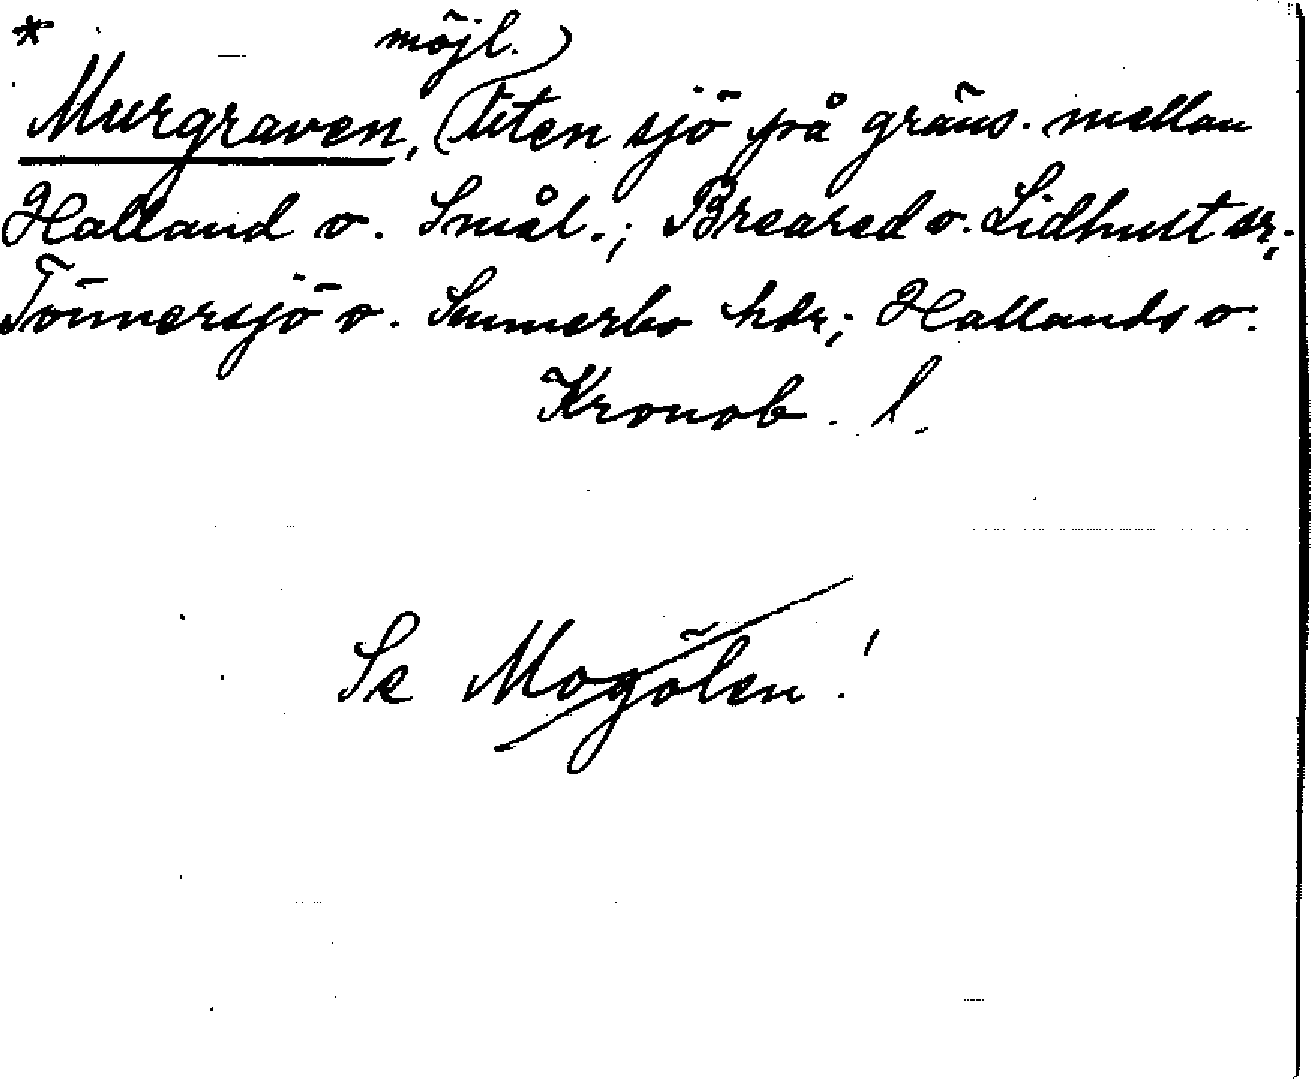 * möjl.
Murgraven, (liten sjö på gräns. mellan
Halland o. Smål.; Breared o. Lidhult sr;
Tönnersjö o. Sunnerbo hdr; Hallands o.
Kronob. l.
Se Mogölen!